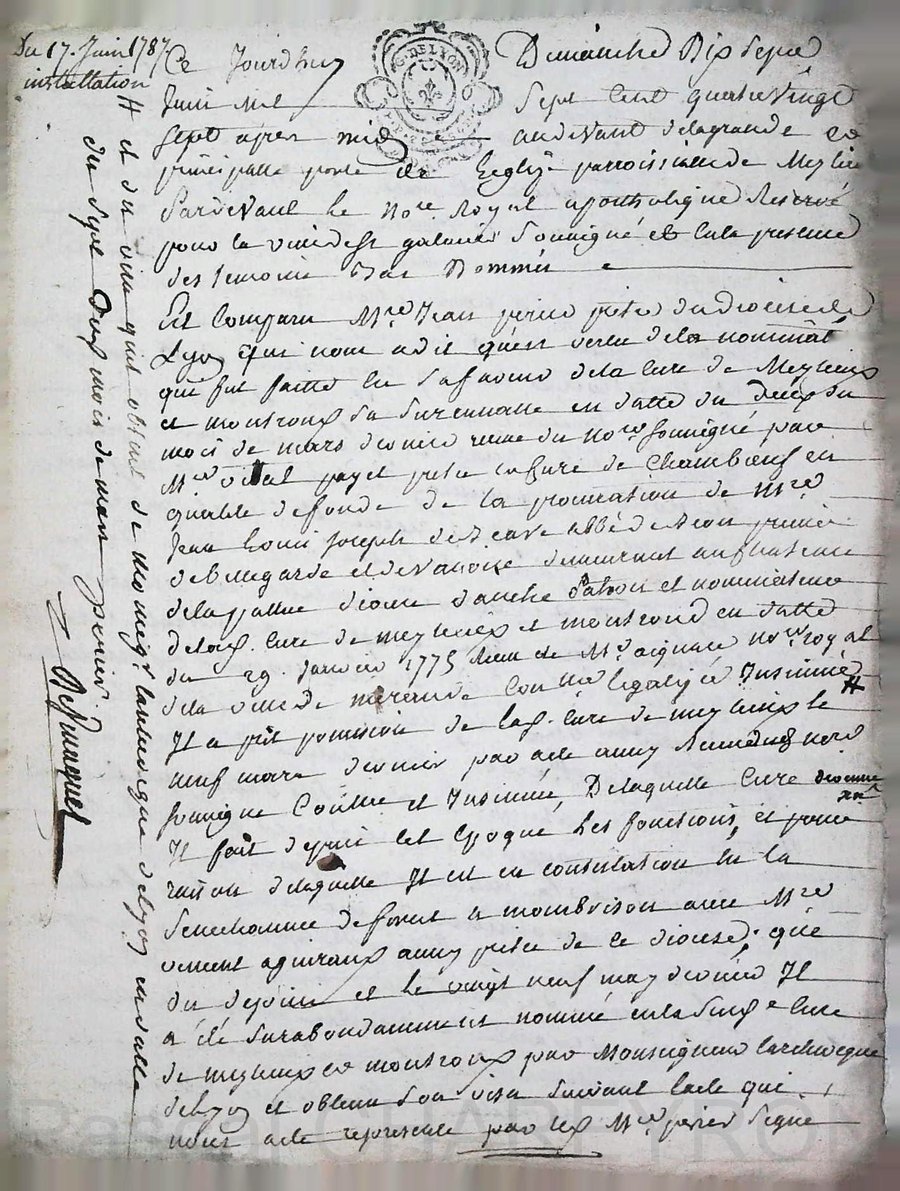 Du 17. Juin 1787
installation
Ce Jourdhuy Dimanche Dix Sept
Juin mil Sept Cent quatre Vingt
Sept apres midy audevant delagrande et
principalle porte de Leglise parroissialle de Meylieu
Pardevant le nore Royal apostholique Reservé
pour la ville de St galmier Soussigné et En la presence
des temoins Bas Nommés
Est Comparu Mre Jean perier pretre du Diocese de
Lyon Qui nous a dit qu'en vertu dela nominaõn
qui fut faitte En Sa faveur dela Cure de Meylieux
et montroux Sa Succursalle en datte du deux du
mois de mars dernier reçue du nore soussigné par
Mre vital payet pretre Cure de Chambœuf en
qualité de fondé de la procuration de Mre
Jean Louis Joseph de abbé de prieur
de bellegarde et de demeurant au chateau
delapallue diocese dauche Patron et nominateur
delad. Cure de meylieux et montrond en datte
du 29. Janvier 1775 Recue de Me nore royal
dela ville de mirande Controllée legalisée Insinuée #
Il a prit possession de lad. Cure de meylieux le
neuf mars dernier par acte aussy Recu dud nore
soussigné Controllé et Insinué, De laquelle Cure
Il fait depuis cet Epoque Les fonctions, et pour
raison delaquelle Il est en contestation En la
Senechaussée de forest a montbrison avec Mre
vincent aguiraud aussy pretre de ce diocese, que
du depuis et le vingt neuf may dernier Il
a été Surabondamment nommé en lad Cure
de meylieux et montroux par Monseigneur Larcheveque
delyon et obtenu Son visa Suivant lacte qui
nous a été representé par led Mre perier Signé
# et du visa quil obtint de monsgr larcheveque delyon en datte
du Sept Dud mois de mars dernier.